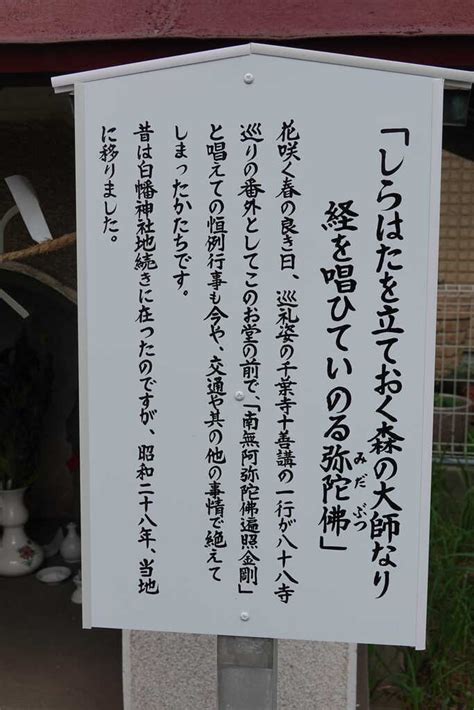 「しらはたを立ておく森の大師なり
経を唱ひていのる弥陀佛」
みだぶつ
花咲く春の良き日、巡礼姿の千葉寺十善講の一行が八十八寺
巡りの番外としてこのお堂の前で、「南無阿弥陀佛遍照金剛」
と唱えての恒例行事も今や、交通や其の他の事情で絶えて
しまったかたちです。
昔は白幡神社地続きに在ったのですが、昭和二十八年、当地
に移りました。